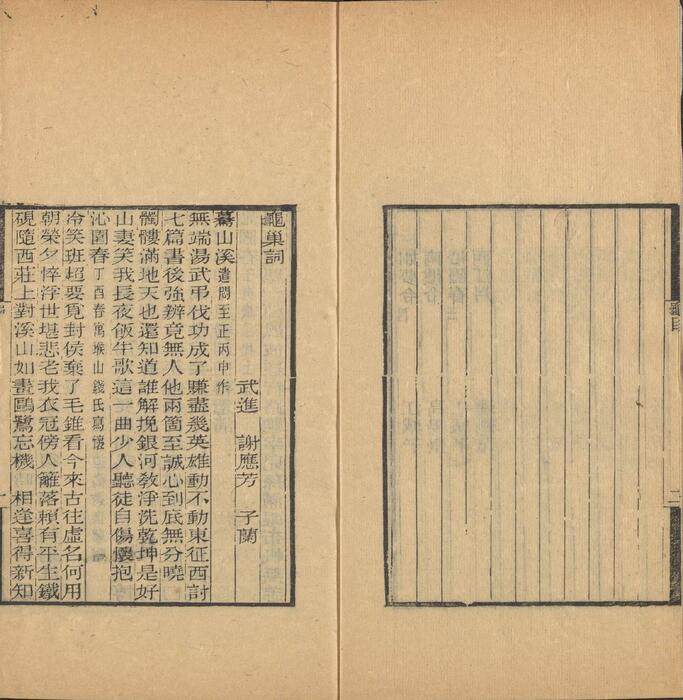 龜目
二
龜巢詞
武進 謝應芳 子蘭
驀山溪遣悶至正丙申作
無端湯武弔伐功成了賺盡幾英雄動不動東征西討
七篇書後強辨竟無人他兩箇至誠心到底無分曉
髑髏滿地天也還知道誰解挽銀河敎淨洗乾坤是好
山妻笑我長夜飯牛歌這一曲少人聽徒自傷懷抱
沁園春丁酉春寓堠山錢氏寫懷
冷笑班超要覓封侯棄了毛錐看今來古往虛名何用
朝榮夕悴浮世堪悲老我衣冠傍人籬落賴有平生鐵
硯隨西莊上對溪山如畫鷗鷺忘機 相逢喜得新知